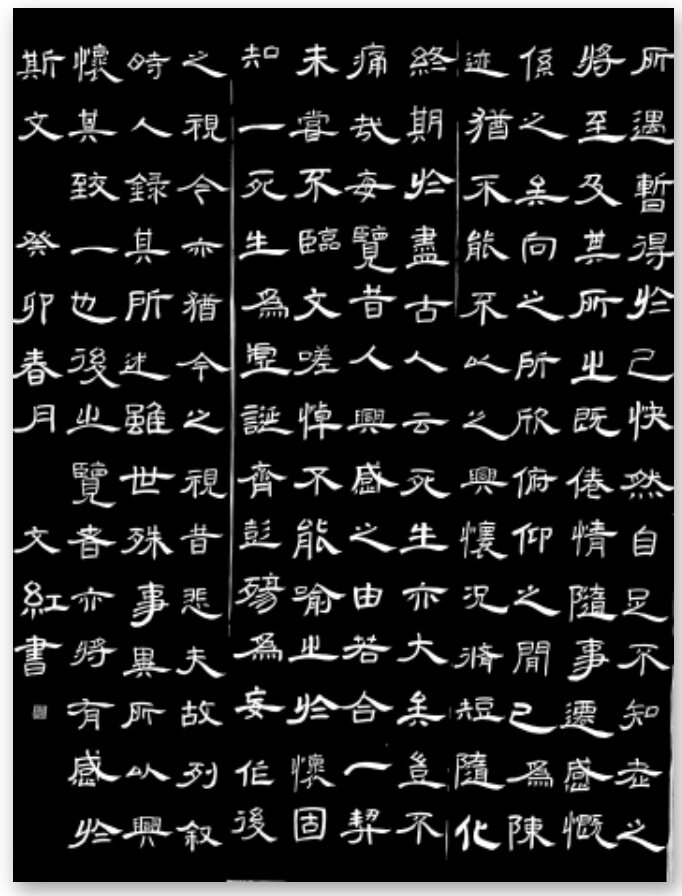 所遇暫得於己快然自足不知老之
將至及其所之既倦情隨事遷感慨
係之矣向之所欣俯仰之閒已為陳
迹猶不能不以之興懷況脩短隨化
終期於盡古人云死生亦大矣豈不
痛哉每覽昔人興感之由若合一契
未嘗不臨文嗟悼不能喻之於懷固
知一死生為虛誕齊彭殤為妄作後
之視今亦猶今之視昔悲夫故列叙
時人錄其所述雖世殊事異所以興
懷其致一也後之覽者亦將有感於
斯文 癸卯春月 文紅書